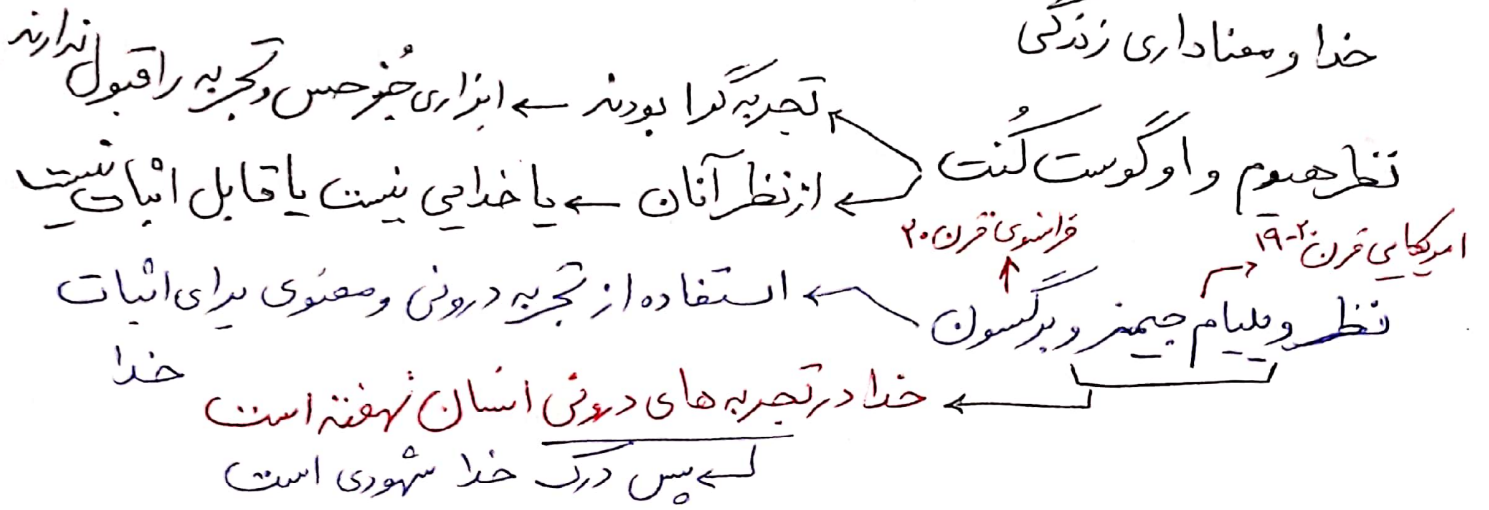 خدا و معناداری زندگی
نظر هیوم و اوگوست کُنت
تجربه گرا بودند ← ابزاری جُز حس و تجربه را قبول ندارند
از نظر آنان ← یا خدایی نیست یا قابل اثبات نیست
امریکایی قرن ۲۰-۱۹
فرانسوی قرن ۲۰
نظر ویلیام جیمز و برگسون ← استفاده از تجربه درونی و معنوی برای اثبات
خدا
← خدا در تجربه های درونی انسان نهفته است
← پس درک خدا شهودی است